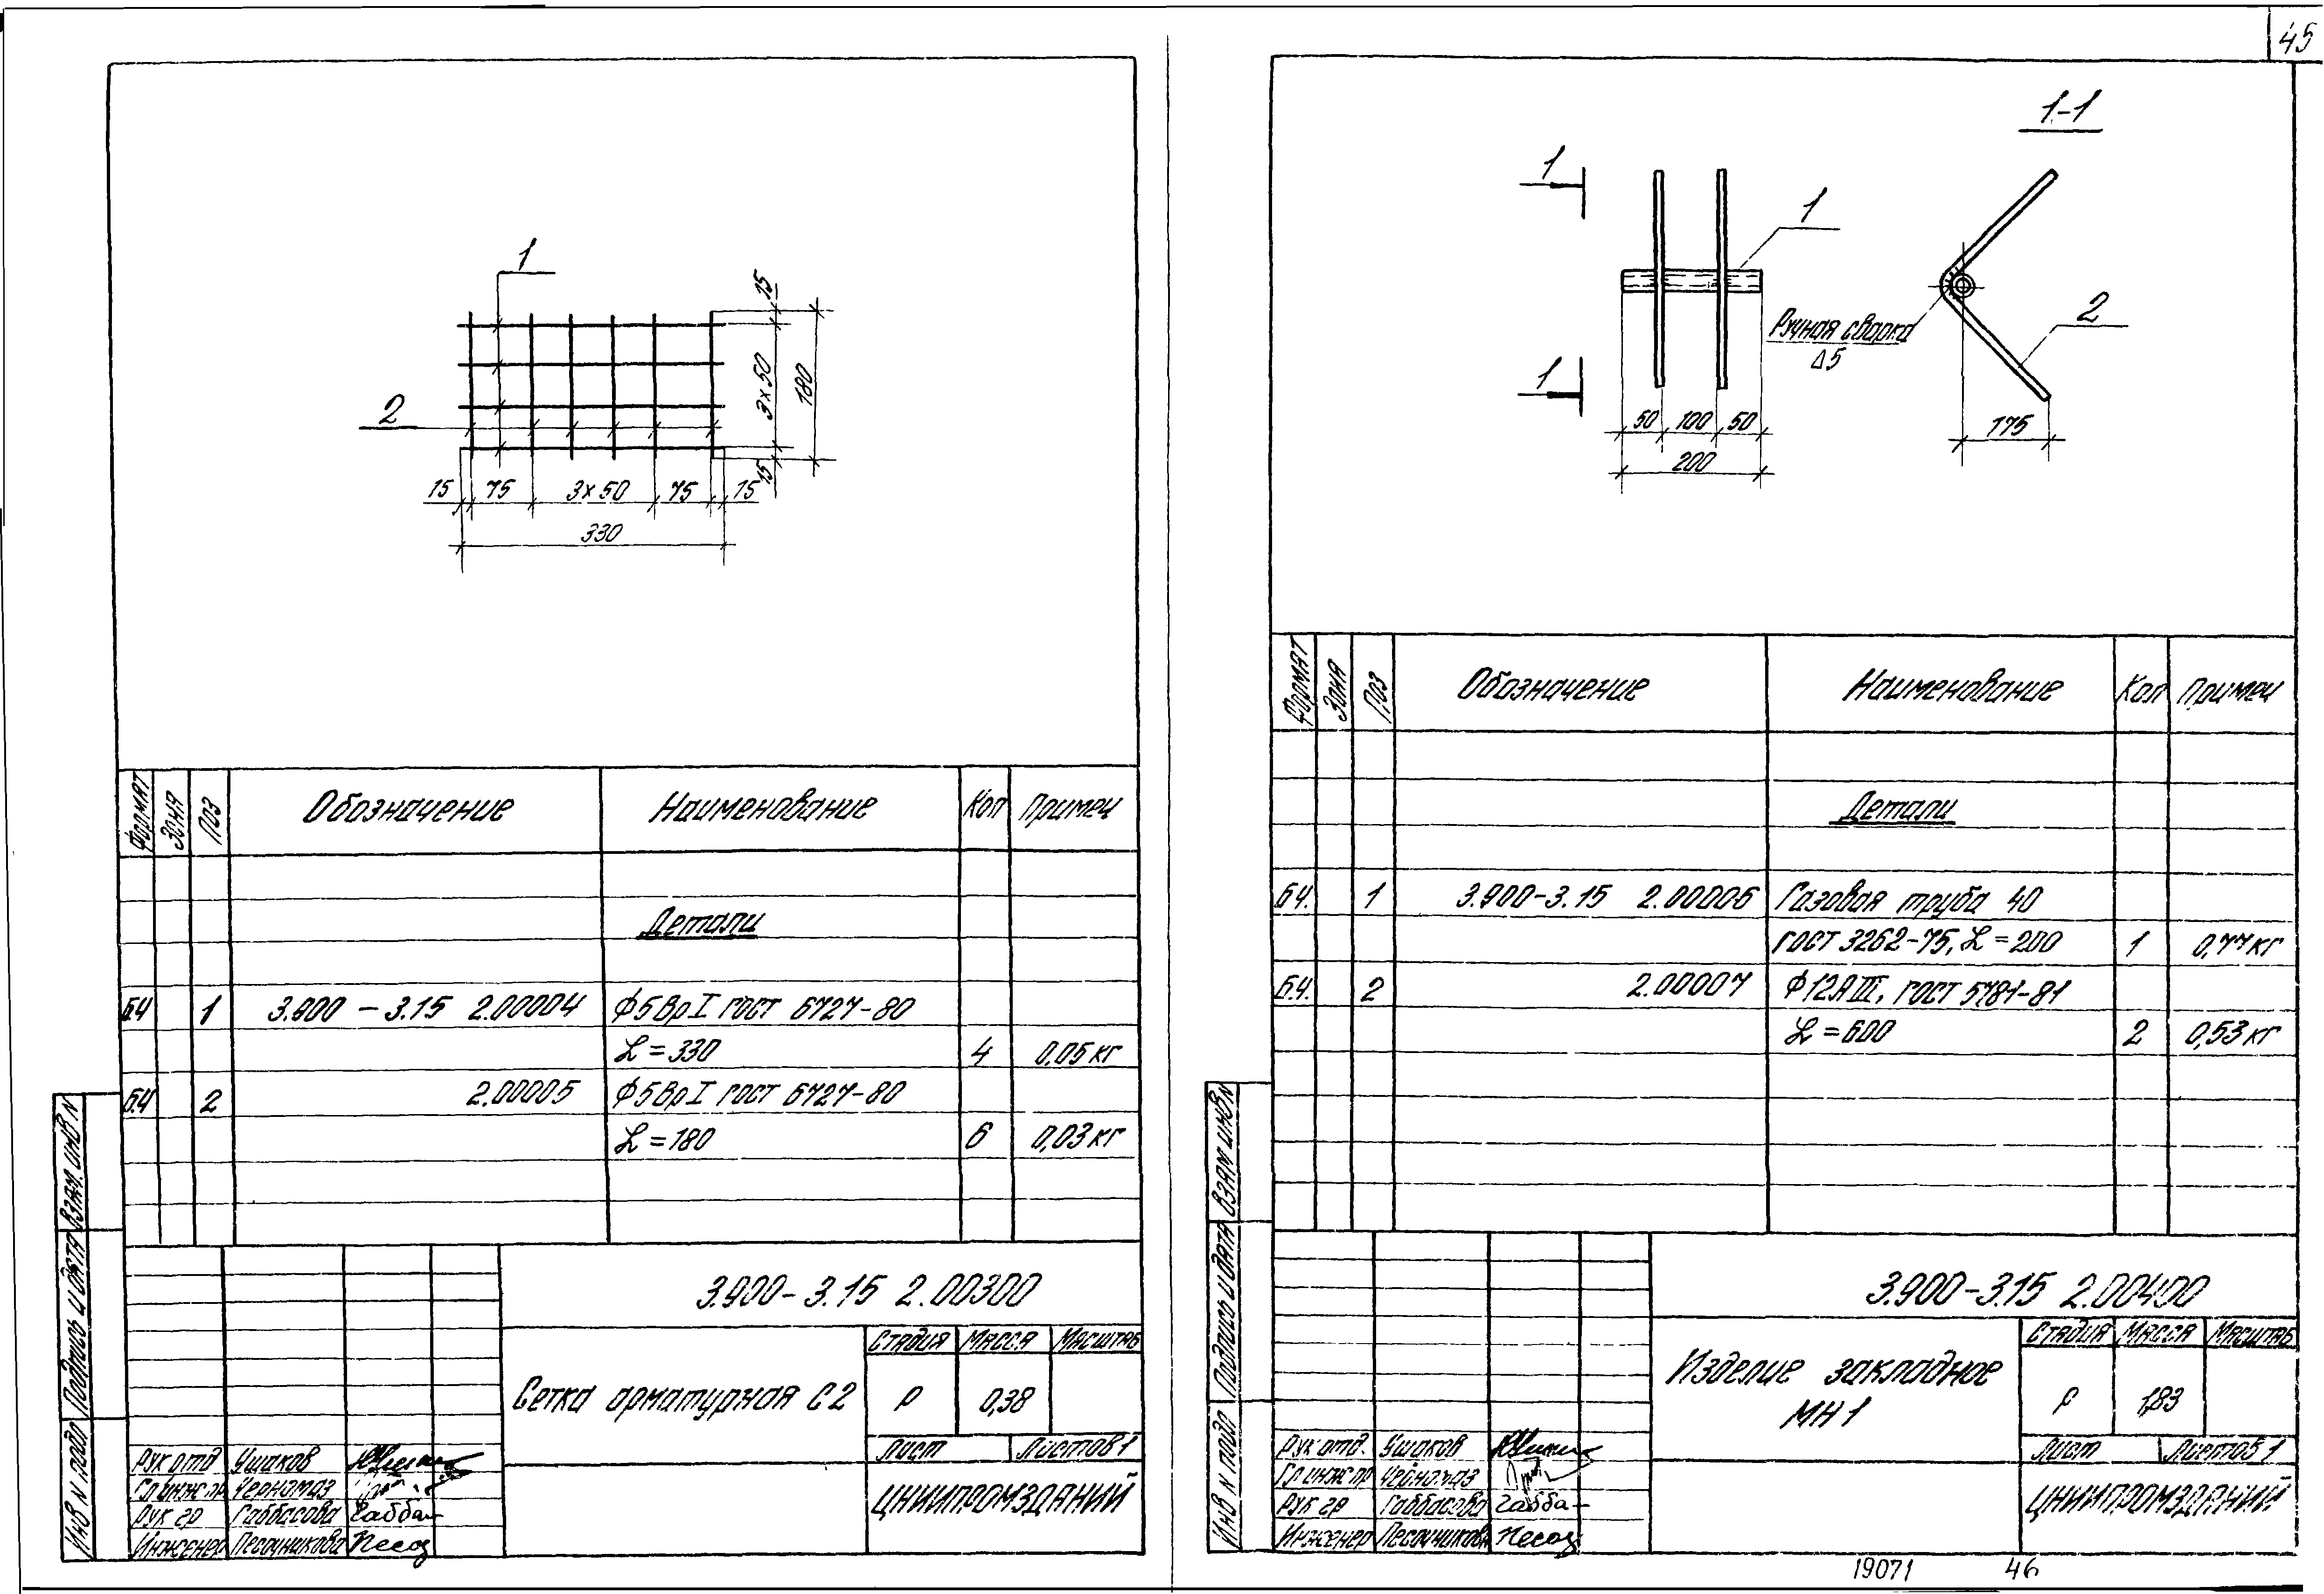 45
1
2
15
3×50
15
180
15
75
3×50
75
15
330
Формат
Зона
Поз
Обозначение
Наименование
Кол
Примеч
Детали
Б.Ч
1
3.900 - 3.15 2.00004
Ф5ВрI ГОСТ 6727-80
L = 330
4
0,05 кг
Б.Ч
2
2.00005
Ф5ВрI ГОСТ 6727-80
L = 180
6
0,03 кг
Взам. инв N
Подпись и дата
Инв N подл
3.900-3.15 2.00300
Сетка арматурная С2
Стадия
Масса
Масштаб
Р
0,38
Лист
Листов 1
ЦНИИПРОМЗДАНИЙ
Рук отд Ушаков
Гл инж пр Черномаз
Рук гр Габбасова Габба-
Инженер Песочникова Песоч
1-1
1
1
1
Ручная сварка
Δ5
2
50
100
50
200
175
Формат
Зона
Поз
Обозначение
Наименование
Кол
Примеч
Детали
Б.Ч.
1
3.900-3.15 2.00006
Газовая труба 40
ГОСТ 3262-75, L = 200
1
0,77 кг
Б.Ч.
2
2.00007
Ф12АIII, ГОСТ 5781-81
L = 600
2
0,53 кг
Взам инв N
Подпись и дата
Инв N подл
3.900-3.15 2.00400
Изделие закладное
МН1
Стадия
Масса
Масштаб
Р
1,83
Лист
Листов 1
ЦНИИПРОМЗДАНИЙ
Рук отд. Ушаков
Гл инж пр Черномаз
Рук гр Габбасова Габба-
Инженер Песочникова Песоч
19071 46